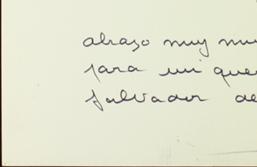 abrazo muy mu
para mi que
Salvador de